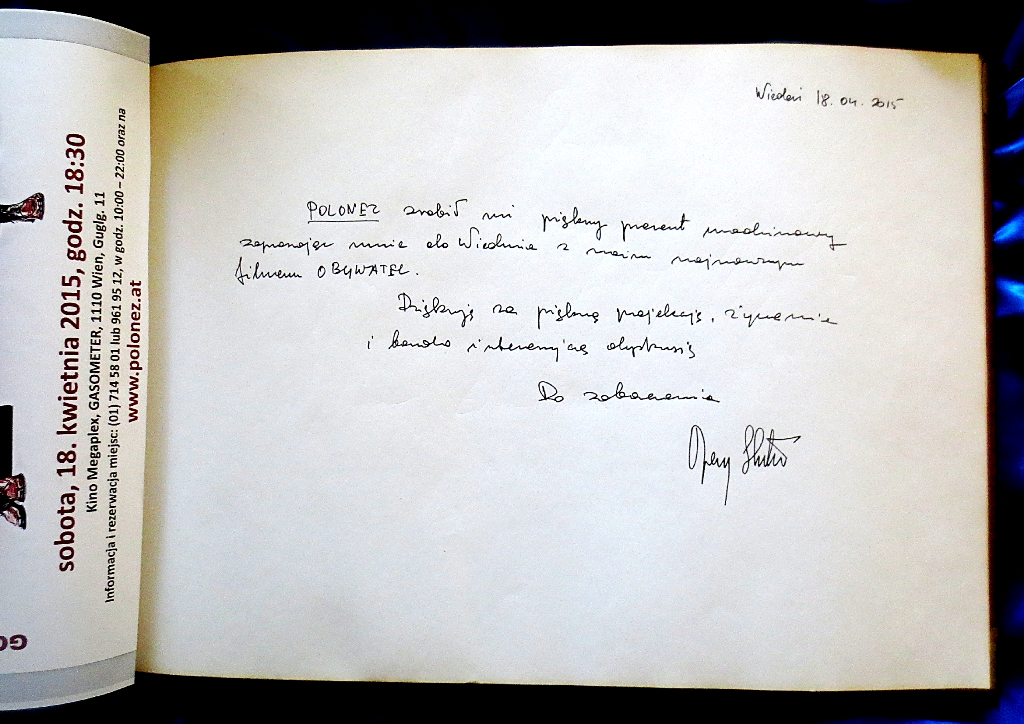 sobota, 18. kwietnia 2015, godz. 18:30
Kino Megaplex, GASOMETER, 1110 Wien, Guglg. 11
Informacja i rezerwacja miejsc: (01) 714 58 01 lub 961 95 12, w godz. 10:00 – 22:00 oraz na
www.polonez.at
GO
Wiedeń 18.04.2015
POLONEZ zrobił mi piękny prezent urodzinowy
zapraszając mnie do Wiednia z moim najnowszym
filmem OBYWATEL.
Dziękuję za piękną projekcję, życzenia
i bardzo interesującą dyskusję
Do zobaczenia